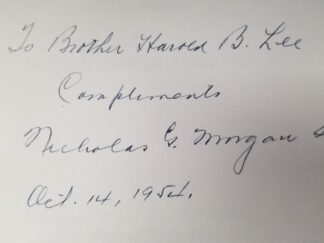 To Brother Harold B. Lee
Compliments
Nicholas G. Morgan
Oct. 14, 1954.